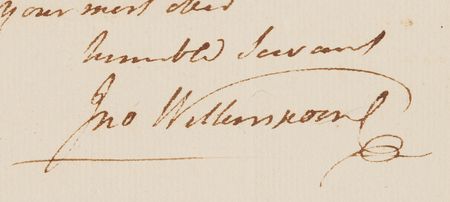 your most obed
humble Servant
Jno Witherspoon